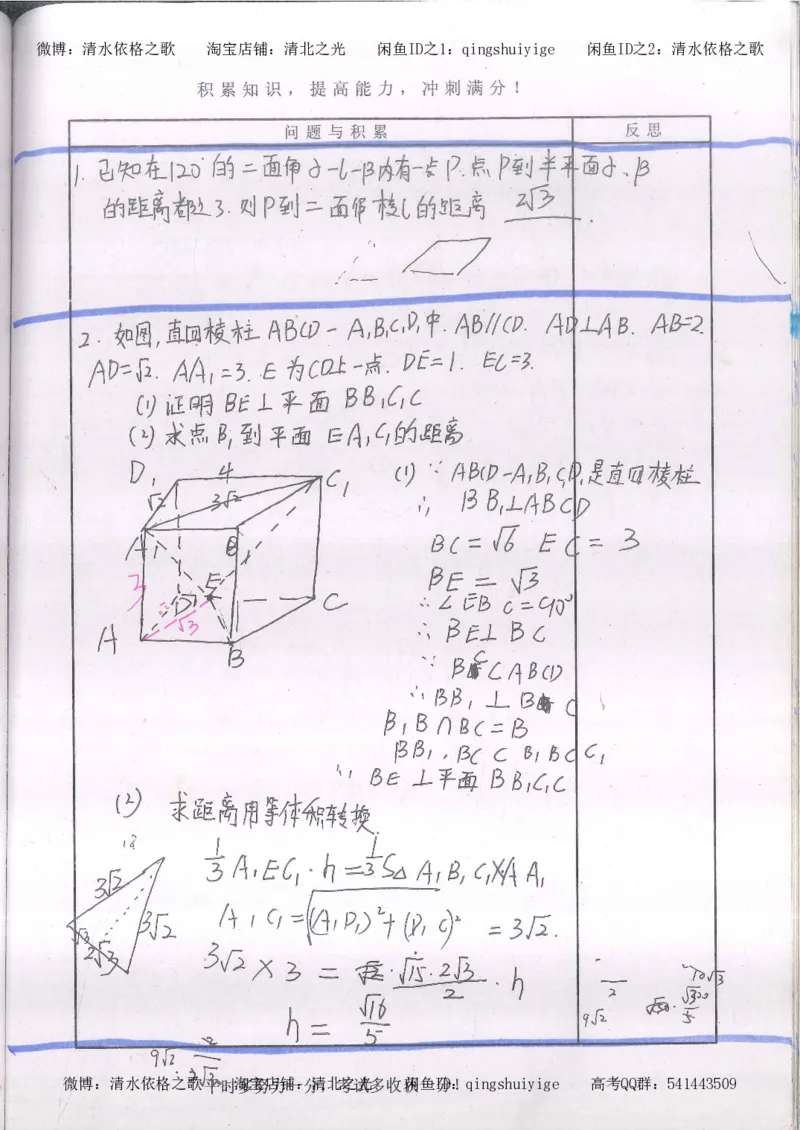 微博：清水依格之歌 淘宝店铺：清北之光 闲鱼ID之1：qingshuiyige 闲鱼ID之2：清水依格之歌
积累知识，提高能力，冲刺满分！
问题与积累 反思
1. 已知在120°的二面角α-l-β内有一点P.点P到半平面α、β
的距离都是3.则P到二面角棱l的距离 2√3 .
2. 如图,直四棱柱 ABCD - A₁B₁C₁D₁中. AB//CD. AD⊥AB. AB=2
AD=√2. AA₁=3. E为CD上一点. DE=1. EC=3.
(1) 证明 BE⊥平面 BB₁C₁C
(2) 求点B₁到平面 EA₁C₁的距离
D₁ 4 C₁
√2 3√2
A₁ B₁
3 D E C
√3
A B
(1) ∵ ABCD-A₁B₁C₁D₁是直四棱柱
∴ BB₁⊥ABCD
BC = √6 EC = 3
BE = √3
∴∠EBC=90°
∴ BE⊥BC
∵ BC⊂ABCD
∴BB₁⊥BC
B₁B∩BC=B
BB₁,BC⊂B₁BCC₁
∴ BE⊥平面BB₁C₁C
(2) 求距离用等体积转换.
1/3 A₁EC₁·h=1/3 S△A₁B₁C₁×AA₁
3√2 3√2 √3 2√3
A₁C₁=√(A₁D₁)²+(D₁C)² =3√2.
3√2×3 = √2·√15·2√3/2·h
h= √16/5
2 9√2 10√3 5
9√2
微博：清水依格之歌 淘宝店铺：清北之光 闲鱼ID：qingshuiyige 高考QQ群：541443509